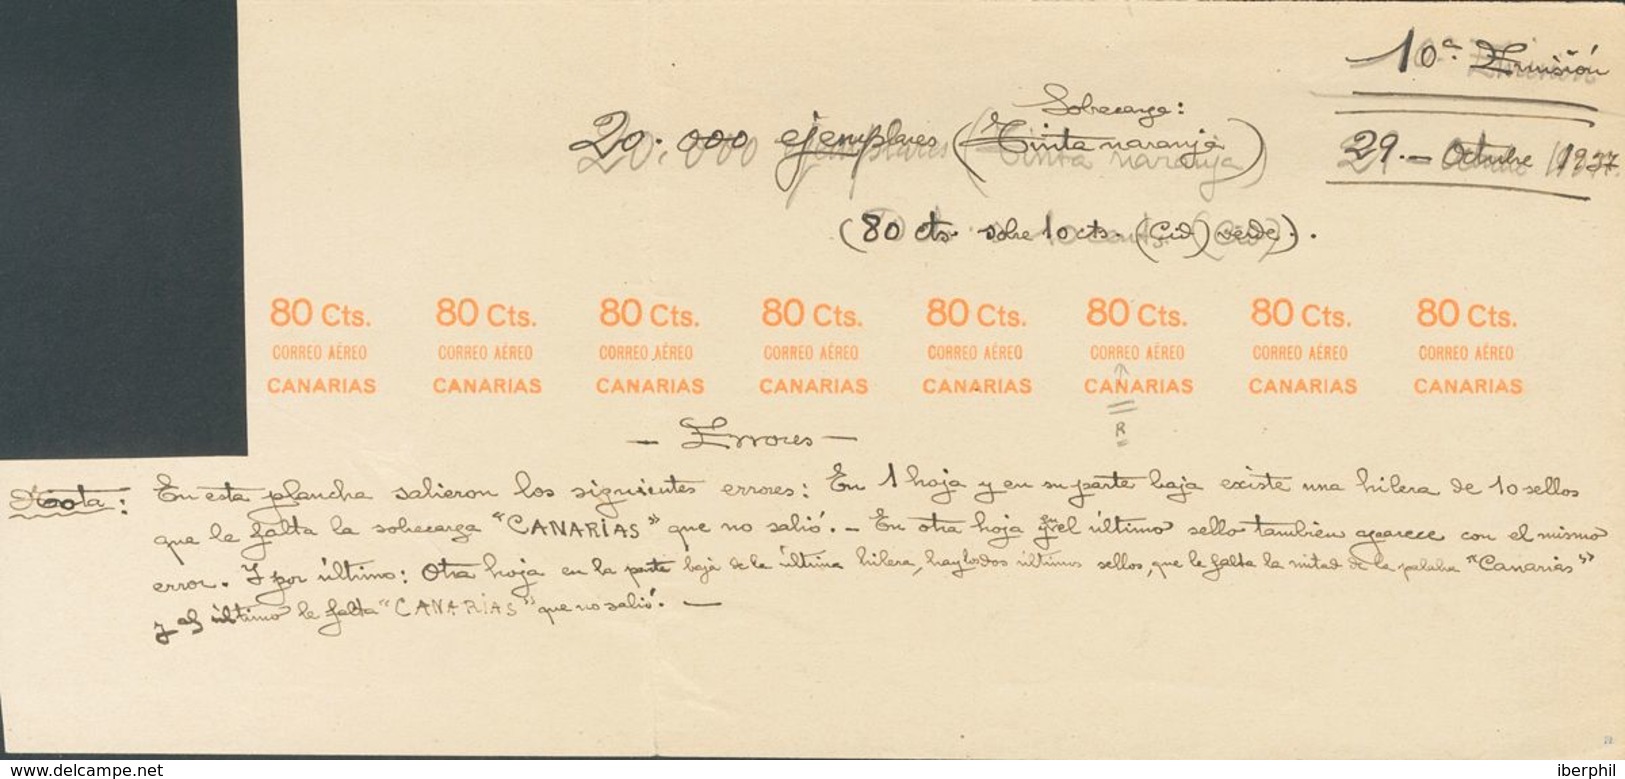 10ª Emisión
Sobrecarga:
20.000 ejemplares (Tinta naranja)
29.- Octubre 1937
(80 cts. sobre 10 cts. (Cid) verde).
80 Cts. 80 Cts. 80 Cts. 80 Cts. 80 Cts. 80 Cts. 80 Cts. 80 Cts.
CORREO AÉREO CORREO AÉREO CORREO AÉREO CORREO AÉREO CORREO AÉREO CORREO AÉREO CORREO AÉREO CORREO AÉREO
CANARIAS CANARIAS CANARIAS CANARIAS CANARIAS CANARIAS CANARIAS CANARIAS
R
- Errores -
Nota: En esta plancha salieron los siguientes errores: En 1 hoja y en su parte baja existe una hilera de 10 sellos
que le falta la sobrecarga "CANARIAS" que no salió. - En otra hoja y el último sello tambien aparece con el mismo
error. Y por último: Otra hoja en la parte baja de la última hilera, hay los dos últimos sellos, que le falta la mitad de la palabra "Canarias"
y al último le falta "CANARIAS" que no salió. -
www.delcampe.net
iberphil